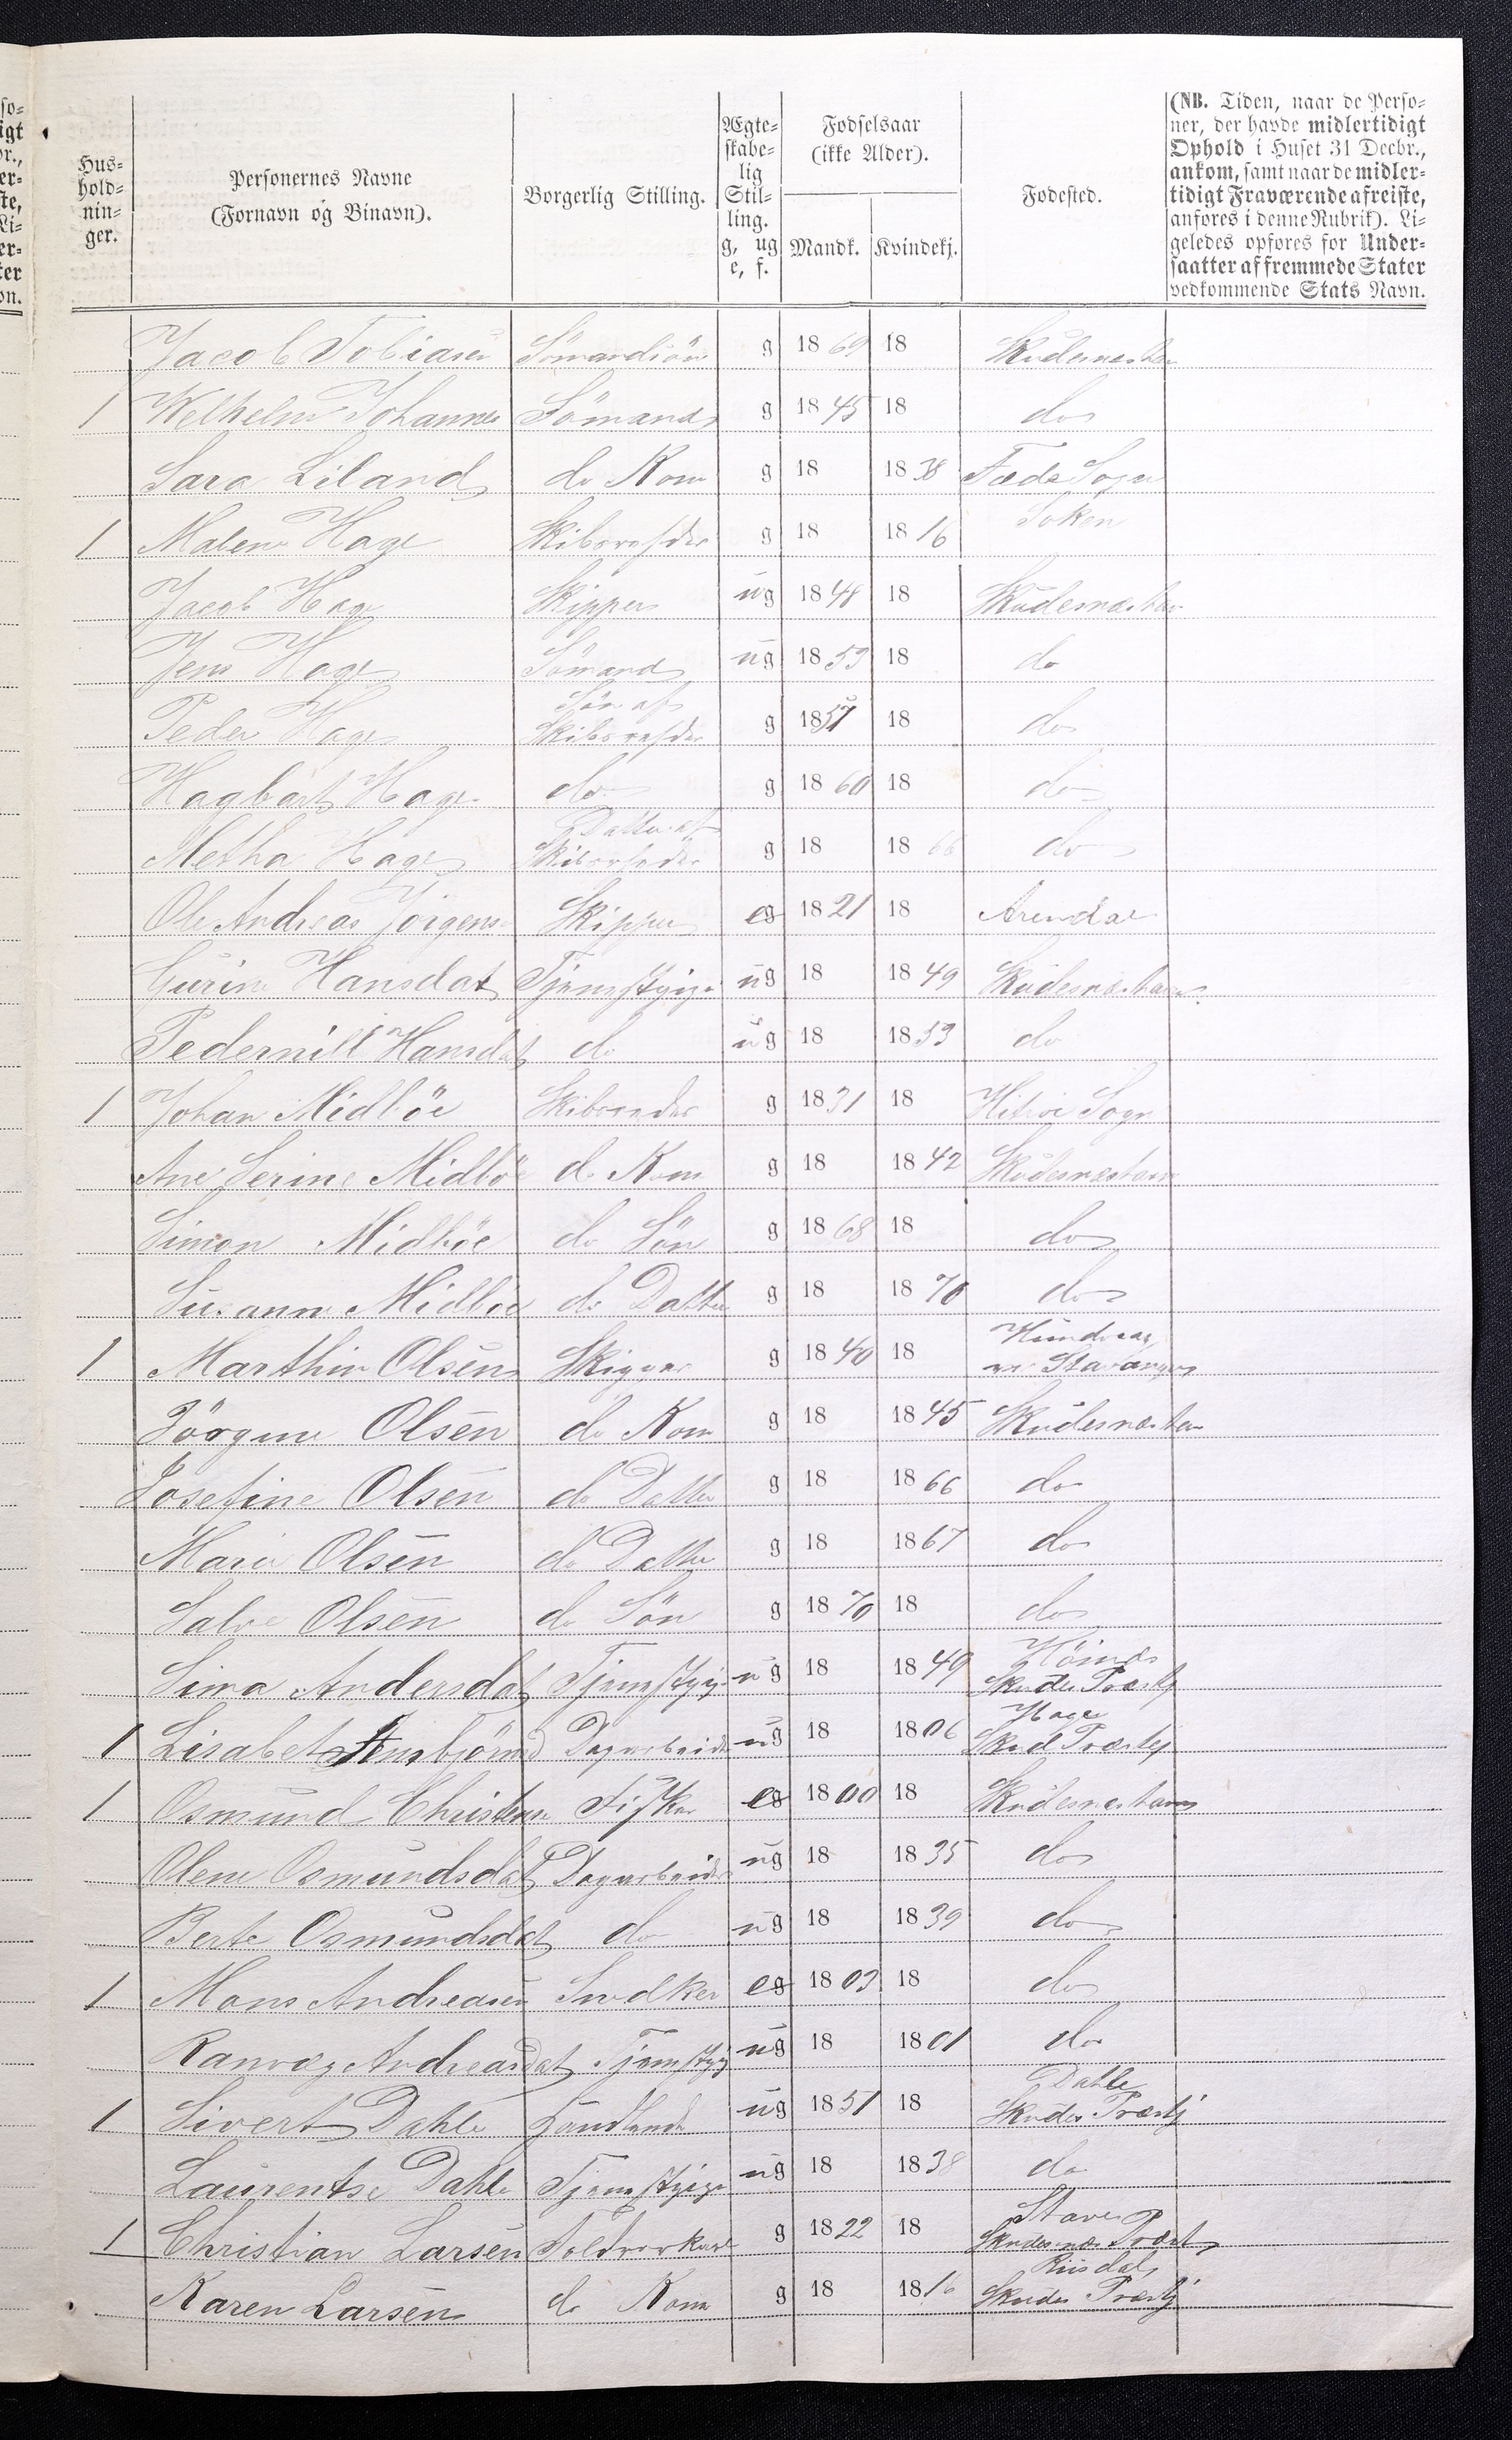 Hus=
hold=
nin=
ger.
Personernes Navne
(Fornavn og Binavn).
Borgerlig Stilling.
Ægte=
skabe=
lig
Stil=
ling.
g, ug
e, f.
Fødselsaar
(ikke Alder).
Mandk. Kvindekj.
Fødested.
(NB. Tiden, naar de Perso=
ner, der havde midlertidigt
Ophold i Huset 31 Decbr.,
ankom, samt naar de midler=
tidigt Fraværende afreiste,
anføres i denne Rubrik). Li=
geledes opføres for Under=
saatter af fremmede Stater
vedkommende Stats Navn.
Jacob Tobiasen g 1869 18 Skudesneshavn
1 Welhelm Johannes Sömand g 1845 18 do
Sara Liland do Kone g 18 1838 Fæde Sogn
1 Malene Hage Skibsreder g 18 1816 Soken
Jacob Hage Skipper ug 1848 18 Skudesneshavn
Jens Hage Sömand ug 1853 18 do
Peder Hage Sön af Skibsreder g 1857 18 do
Hagbart Hage do g 1860 18 do
Metha Hage Datter af Skibsreder g 18 1866 do
Ole Andreas Jörgens Skipper e 1821 18 Arendal
Gurine Hansdat ug 18 1849 Skudesneshavn
Pedernill Hansdat do ug 18 1853 do
1 Johan Midböe Skibsreder g 1831 18 Hitröe Sogn
Ane Serine Midböe do Kone g 18 1842 Skudesneshavn
Simon Midböe do Sön g 1868 18 do
Susanne Midböe do Datter g 18 1870 do
1 Marthin Olsen Skipper g 1840 18 Hundvaag
Stavanger
Jörgine Olsen do Kone g 18 1845 Skudesneshavn
Josefine Olsen do Datter g 18 1866 do
Marie Olsen do Datter g 18 1867 do
Salve Olsen do Sön g 1870 18 do
Sima Andersdat ug 18 1849 Skudes Præstj
1 Lisabet Dagarbeider ug 18 1806 Hage
Skud Præstej
1 Osmund Christense Fisker e 1800 18 Skudesneshavn
Olene Osmundsdat Dagarbeider ug 18 1835 do
Berte Osmundsdat do ug 18 1839 do
1 Mons Andreasen Snedker e 1803 18 do
Ranvæg Andreasdat ug 18 1801 do
1 Sivert Dahle ug 1851 18 Dahle
Skudes Præstj
Laurentse Dahle ug 18 1838 do
1 Christian Larsen g 1822 18 Stave
Skudesnes Præst
Karen Larsen do Kone g 18 1816
Skudes Præstj